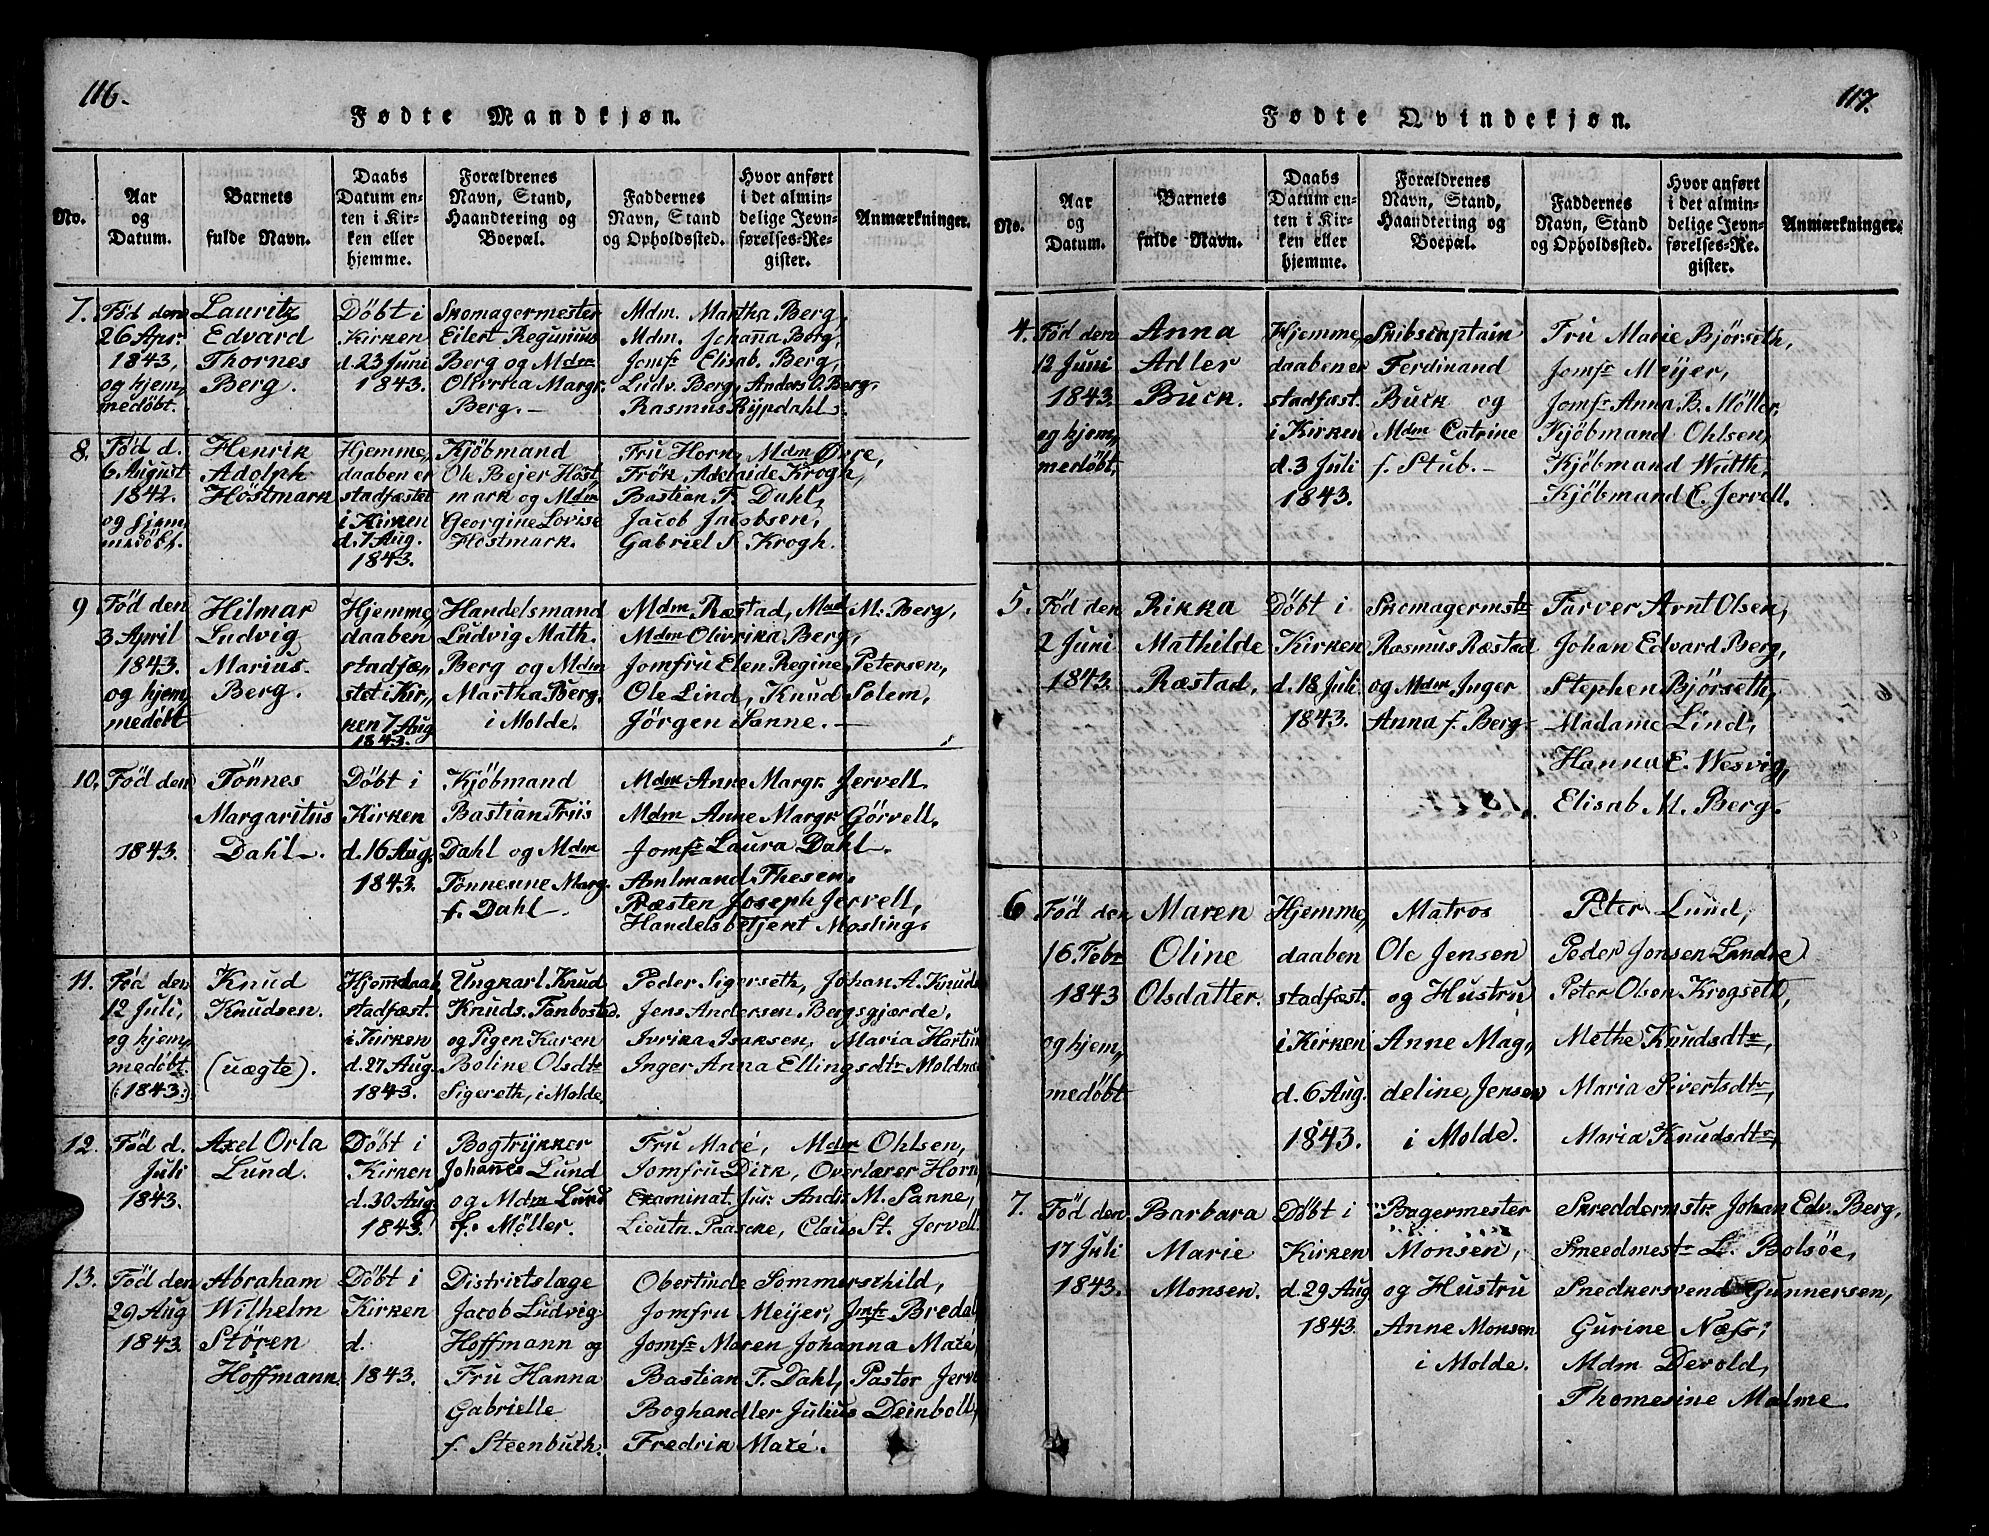 116.
Fødte Mandkjøn.
No.
Aar
og
Datum.
Barnets
fulde Navn.
Daabs
Datum en-
ten i Kir-
ken eller
hjemme.
Forældrenes
Navn, Stand,
Haandtering og
Boepæl.
Faddernes
Navn, Stand
og Opholdssted.
Hvor anført
i det almin-
delige Jevn-
førelses-Re-
gister.
Anmærkninger.
7.
Fød den
26 Apr.
1843,
og hjem„
medøbt.
Lauritz
Edvard
Thornes
Berg.
Döbt i
Kirken
d. 23 Juni
1843.
Skomagermester
Eilert Regunius
Berg og Mdm
Olivria Margr.
Berg. —
Mdm. Martha Berg,
Mdm. Johanna Borg,
Jomfr Elisab. Berg,
Ludv. Berg, Anders O. Berg.
Rasmus Rypdahl.
8.
Fød d.
6 August
1842.
og hjem„
medöbt.
Henrik
Adolph
Höstmark
Hjemme„
daaben er
stadfæstet
i Kirken
d. 7 Aug.
1843.
Kjöbmand
Ole Bejer Höst„
mark og Mdm
Georgine Lovise
Höstmark.
Fru Horn, Mdm Övre,
Frök Adelaide Krogh,
Bastian F. Dahl,
Jacob Jacobsen,
Gabriel S. Krogh.
9
Fød den
3 April
1843.
og hjem„
medöbt
Hilmar
Ludvig
Marius
Berg.
Hjemme„
daaben
stadfæ„
stet i Kir„
ken 7 Aug
1843.
Handelsmand
Ludvig Math.
Berg og Mdm
Martha Berg.
i Molde.
Mdm Ræstad, Mad M. Berg,
Mdm Olivrika Berg,
Jomfru Elen Regine Petersen,
Ole Lind, Knud Solem,
Jörgen Sanne. —
10.
Fød den
1843.
Tönnes
Margaritus
Dahl.
Döbt i
Kirken
d. 16 Aug.
1843.
Kjöbmand
Bastian Friis
Dahl og Mdm
Tönnesine Marg.
f. Dahl.
Mdm Anne Margr. Jervell.
Mdm Anne Margr. Görvell.
Jomfr Laura Dahl.
Amtmand Thesen,
Præsten Joseph Jervell,
Handelsbetjent Mosling.
11.
Fød den
12 Juli,
og hjem„
medöbt.
(:1843:)
Knud
Knudsen.
(uægte).
Hjemdaab
stadfæst.
i Kirken
d. 27 Aug.
1843.
Ungkarl Knud
Knuds. Tanbosted.
og Pigen Karen
Boline Olsdtr
Sigereth, i Molde.
Peder Sigerseth, Johan A. Knuds
Jens Andersen Bergsgjærde,
Ivrika Isaksen, Maria Hartu
Inger Anna Ellingsdtr Moldnæ
12.
Fød d.
Juli
1843.
Axel Orla
Lund.
Döbt i
Kirken
d. 30 Aug.
1843.
Bogtrykker
Johannes Lund
og Mdm Lund
f. Möller.
Fru Maté, Mdm Ohlsen,
Jomfru Dick, Overlærer Horn,
Examinat. Jur. Andr. M. Sanne,
Lieutn. Paascke, Claus St. Jervell
13.
Fød den
29 Aug
1843.
Abraham
Wilhelm
Stören
Hoffmann.
Döbt i
Kirken
d.
1843.
Districtslæge
Jacob Ludvig
Hoffmann og
Fru Hanna
Gabrielle
f. Steenbuch.
Obertinde Sommerschild,
Jomfru Meijer, Jmfr Bredal,
Jomfr Maren Johanna Maté,
Bastian F. Dahl, Pastor Jerv
Boghandler Julius Deinboll,
Fredrik Maté.
117.
Fødte Qvindekjøn.
No.
Aar
og
Datum.
Barnets
fulde Navn.
Daabs
Datum en-
ten i Kir-
ken eller
hjemme.
Forældrenes
Navn, Stand,
Haandtering og
Boepæl.
Faddernes
Navn, Stand
og Opholdssted.
Hvor anført
i det almin-
delige Jevn-
førelses-Re-
gister.
Anmærkninger.
4.
Fød den
12 Juni
1843.
og hjem„
medöbt,
Anna
Adler
Buck.
Hjemme„
daaben er
stadfæst.
i Kirken
d. 3 Juli
1843.
Skibscaptain
Ferdinand
Buck og
Mdm Catrine
f. Stub. —
Fru Marie Björseth,
Jomfr Meijer,
Jomfr Anna B. Möller,
Kjöbmand Ohlsen,
Kjöbmand Witth,
Kjöbmand E. Jervell.
5.
Fød den
2 Juni
1843.
Rikka
Mathilde
Ræstad,
Döbt i
Kirken
d. 18 Juli
1843.
Skomagermstr
Rasmus Ræstad
og Mdm Inger
Anna f. Berg.
Farver Arnt Olsen,
Johan Edvard Berg,
Stephen Björseth,
Madame Lind,
Hanna E. Wesvig,
Elisab M. Berg.
6
Fød den
16. Febr
1843
og hjem„
medöbt
Maren
Oline
Olsdatter.
Hjemme„
daaben
stadfæst.
i Kirken
d. 6 Aug.
1843.
Matros
Ole Jensen
og Hustru
Anne Mag„
deline Jensen
i Molde.
Peter Lund,
Peder Jonsen Lindre
Peter Olsen Krogseth,
Methe Knudsdtr,
Maria Sivertsdtr,
Maria Knudsdtr,
7.
Fød den
17 Juli
1843.
Barbara
Marie
Monsen.
Döbt i
Kirken
d. 29 Aug
1843.
Bagermester
Monsen,
og Hustru
Anne Monsen
i Molde.
Skreddermstr Johan Edv. Berg,
Smedmestr L. Bolsöe,
Snedkersvend Gunnersen,
Gurine Næss;
Mdm Devold,
Thomesine Malme.